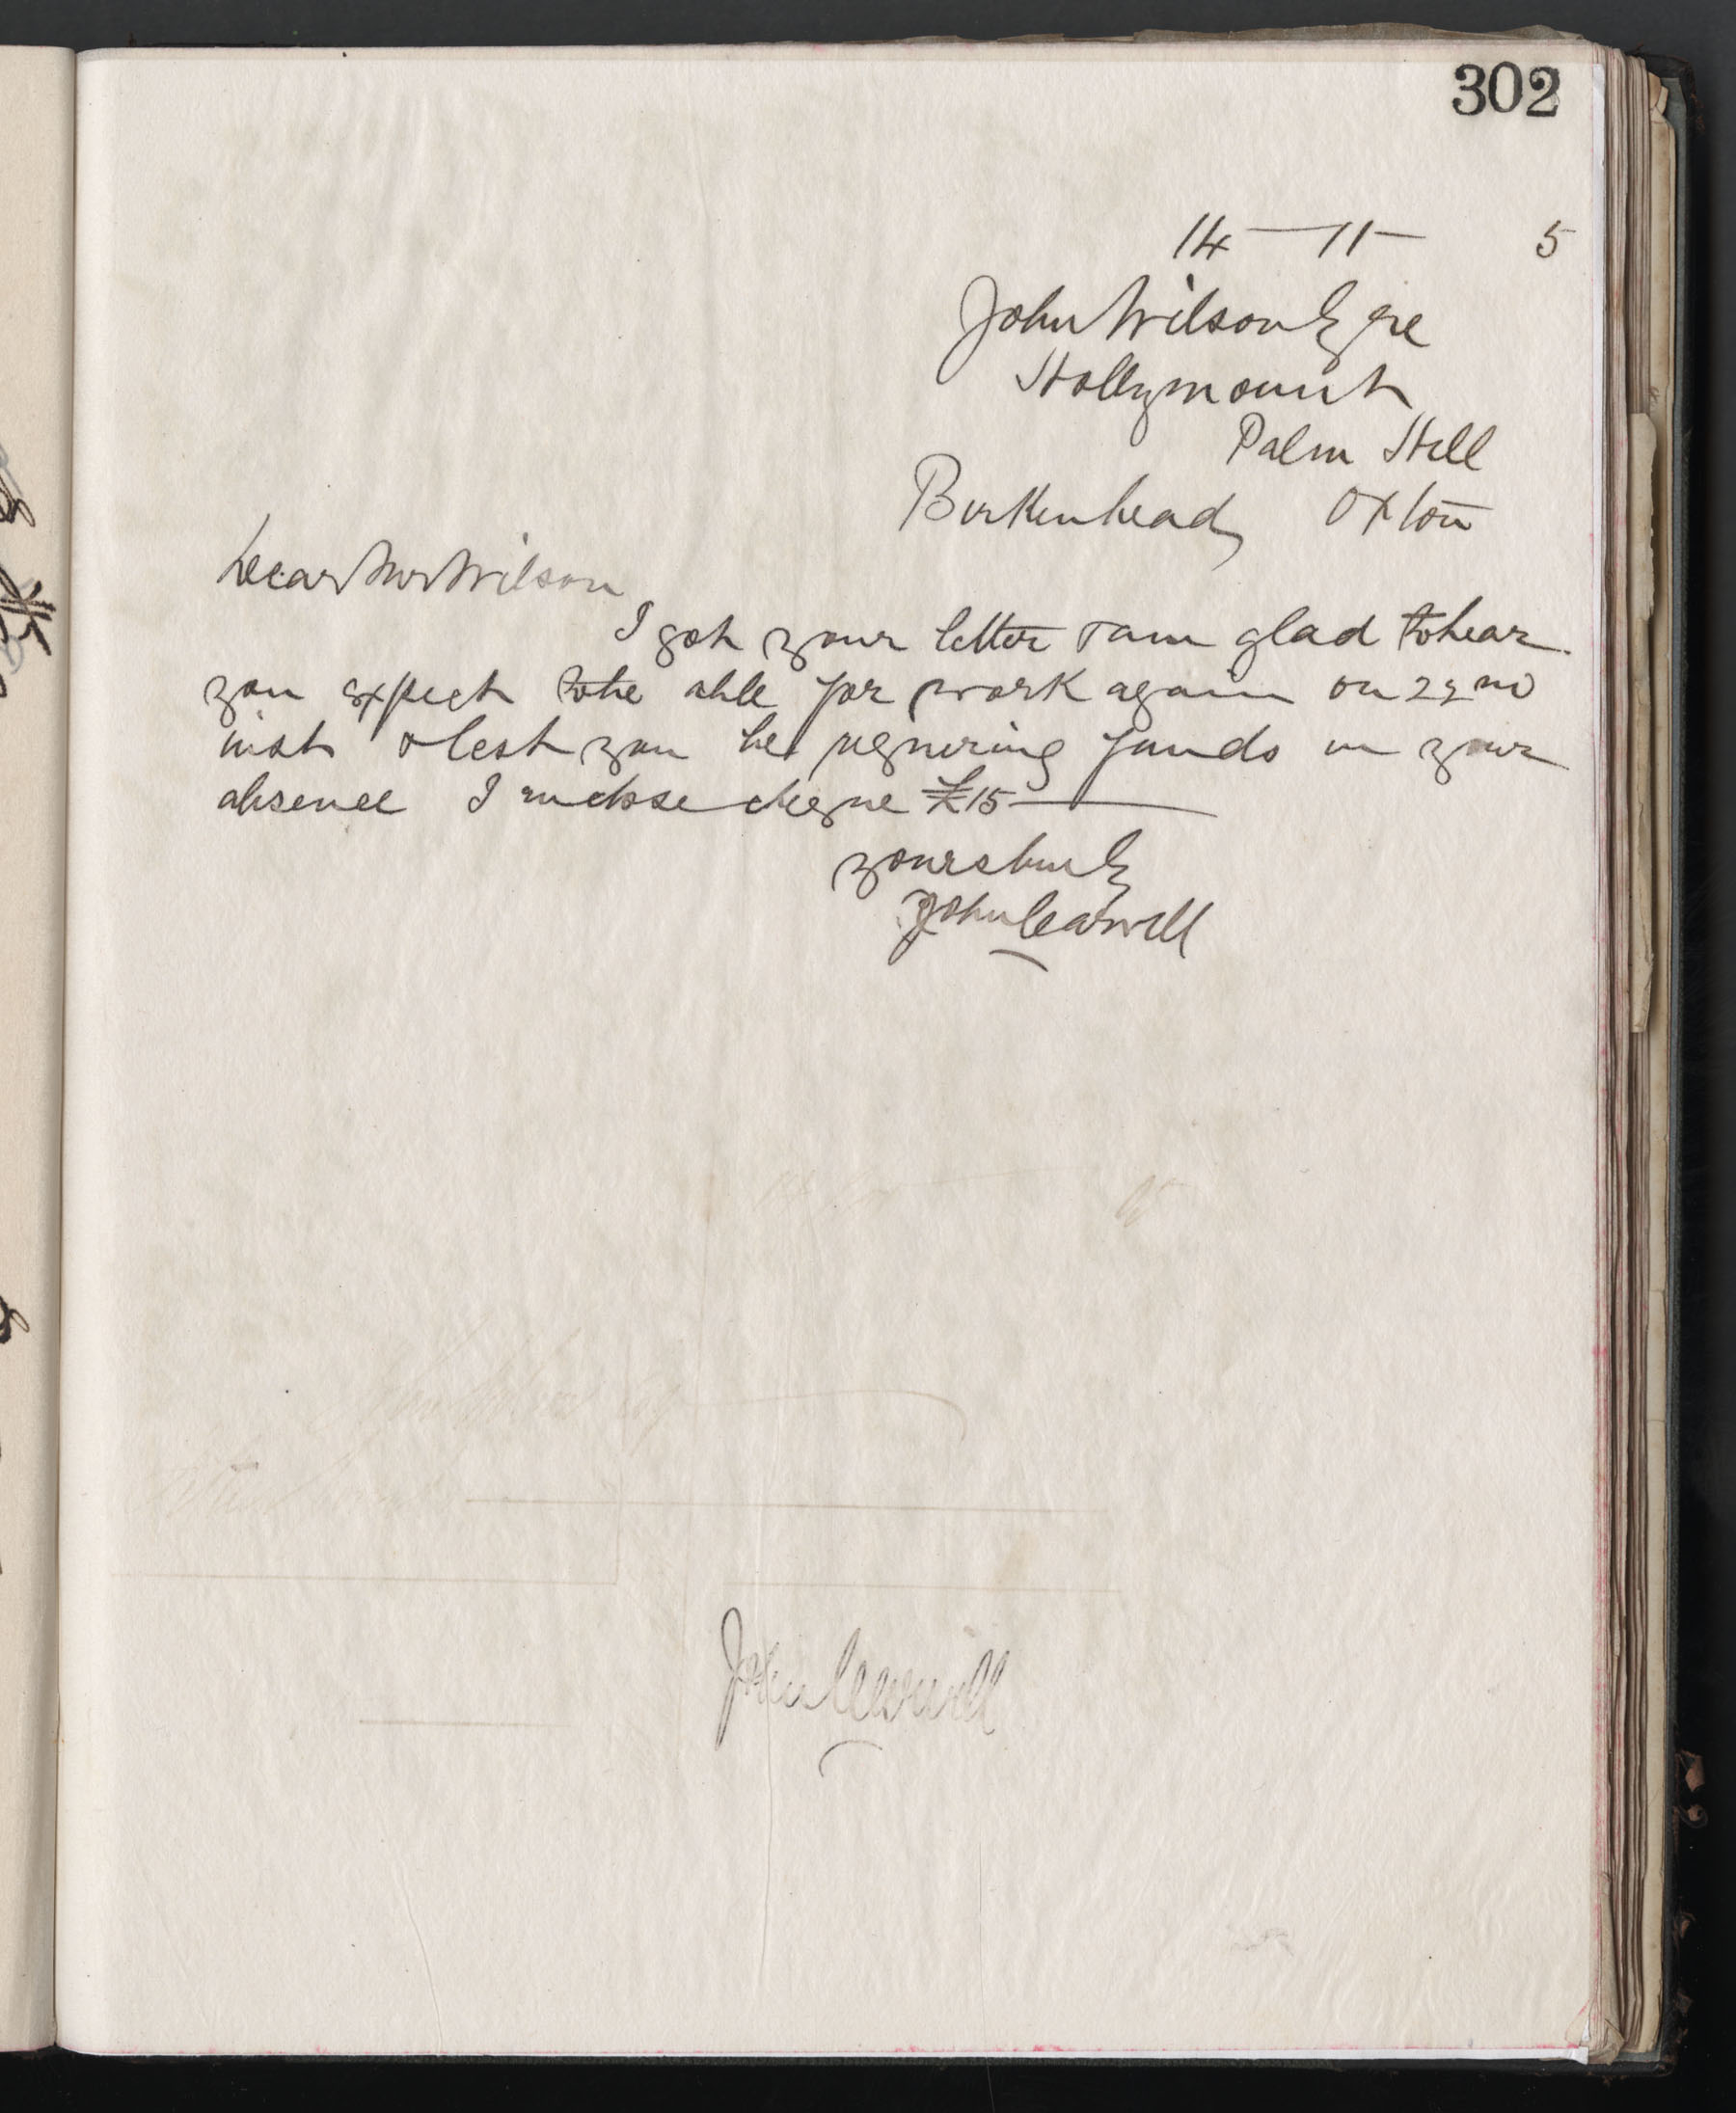 302
14 — 11 — 5
John Wilson Esqre
Hollymount
Palm Hill
Birkenhead Oxton
Dear Mr Wilson
I got your letter & am glad to hear
you expect to be able for work again on 22nd
inst & lest you be requiring funds in your
absence I enclose cheque £15 —
yours truly
John Carvell
John Carvell